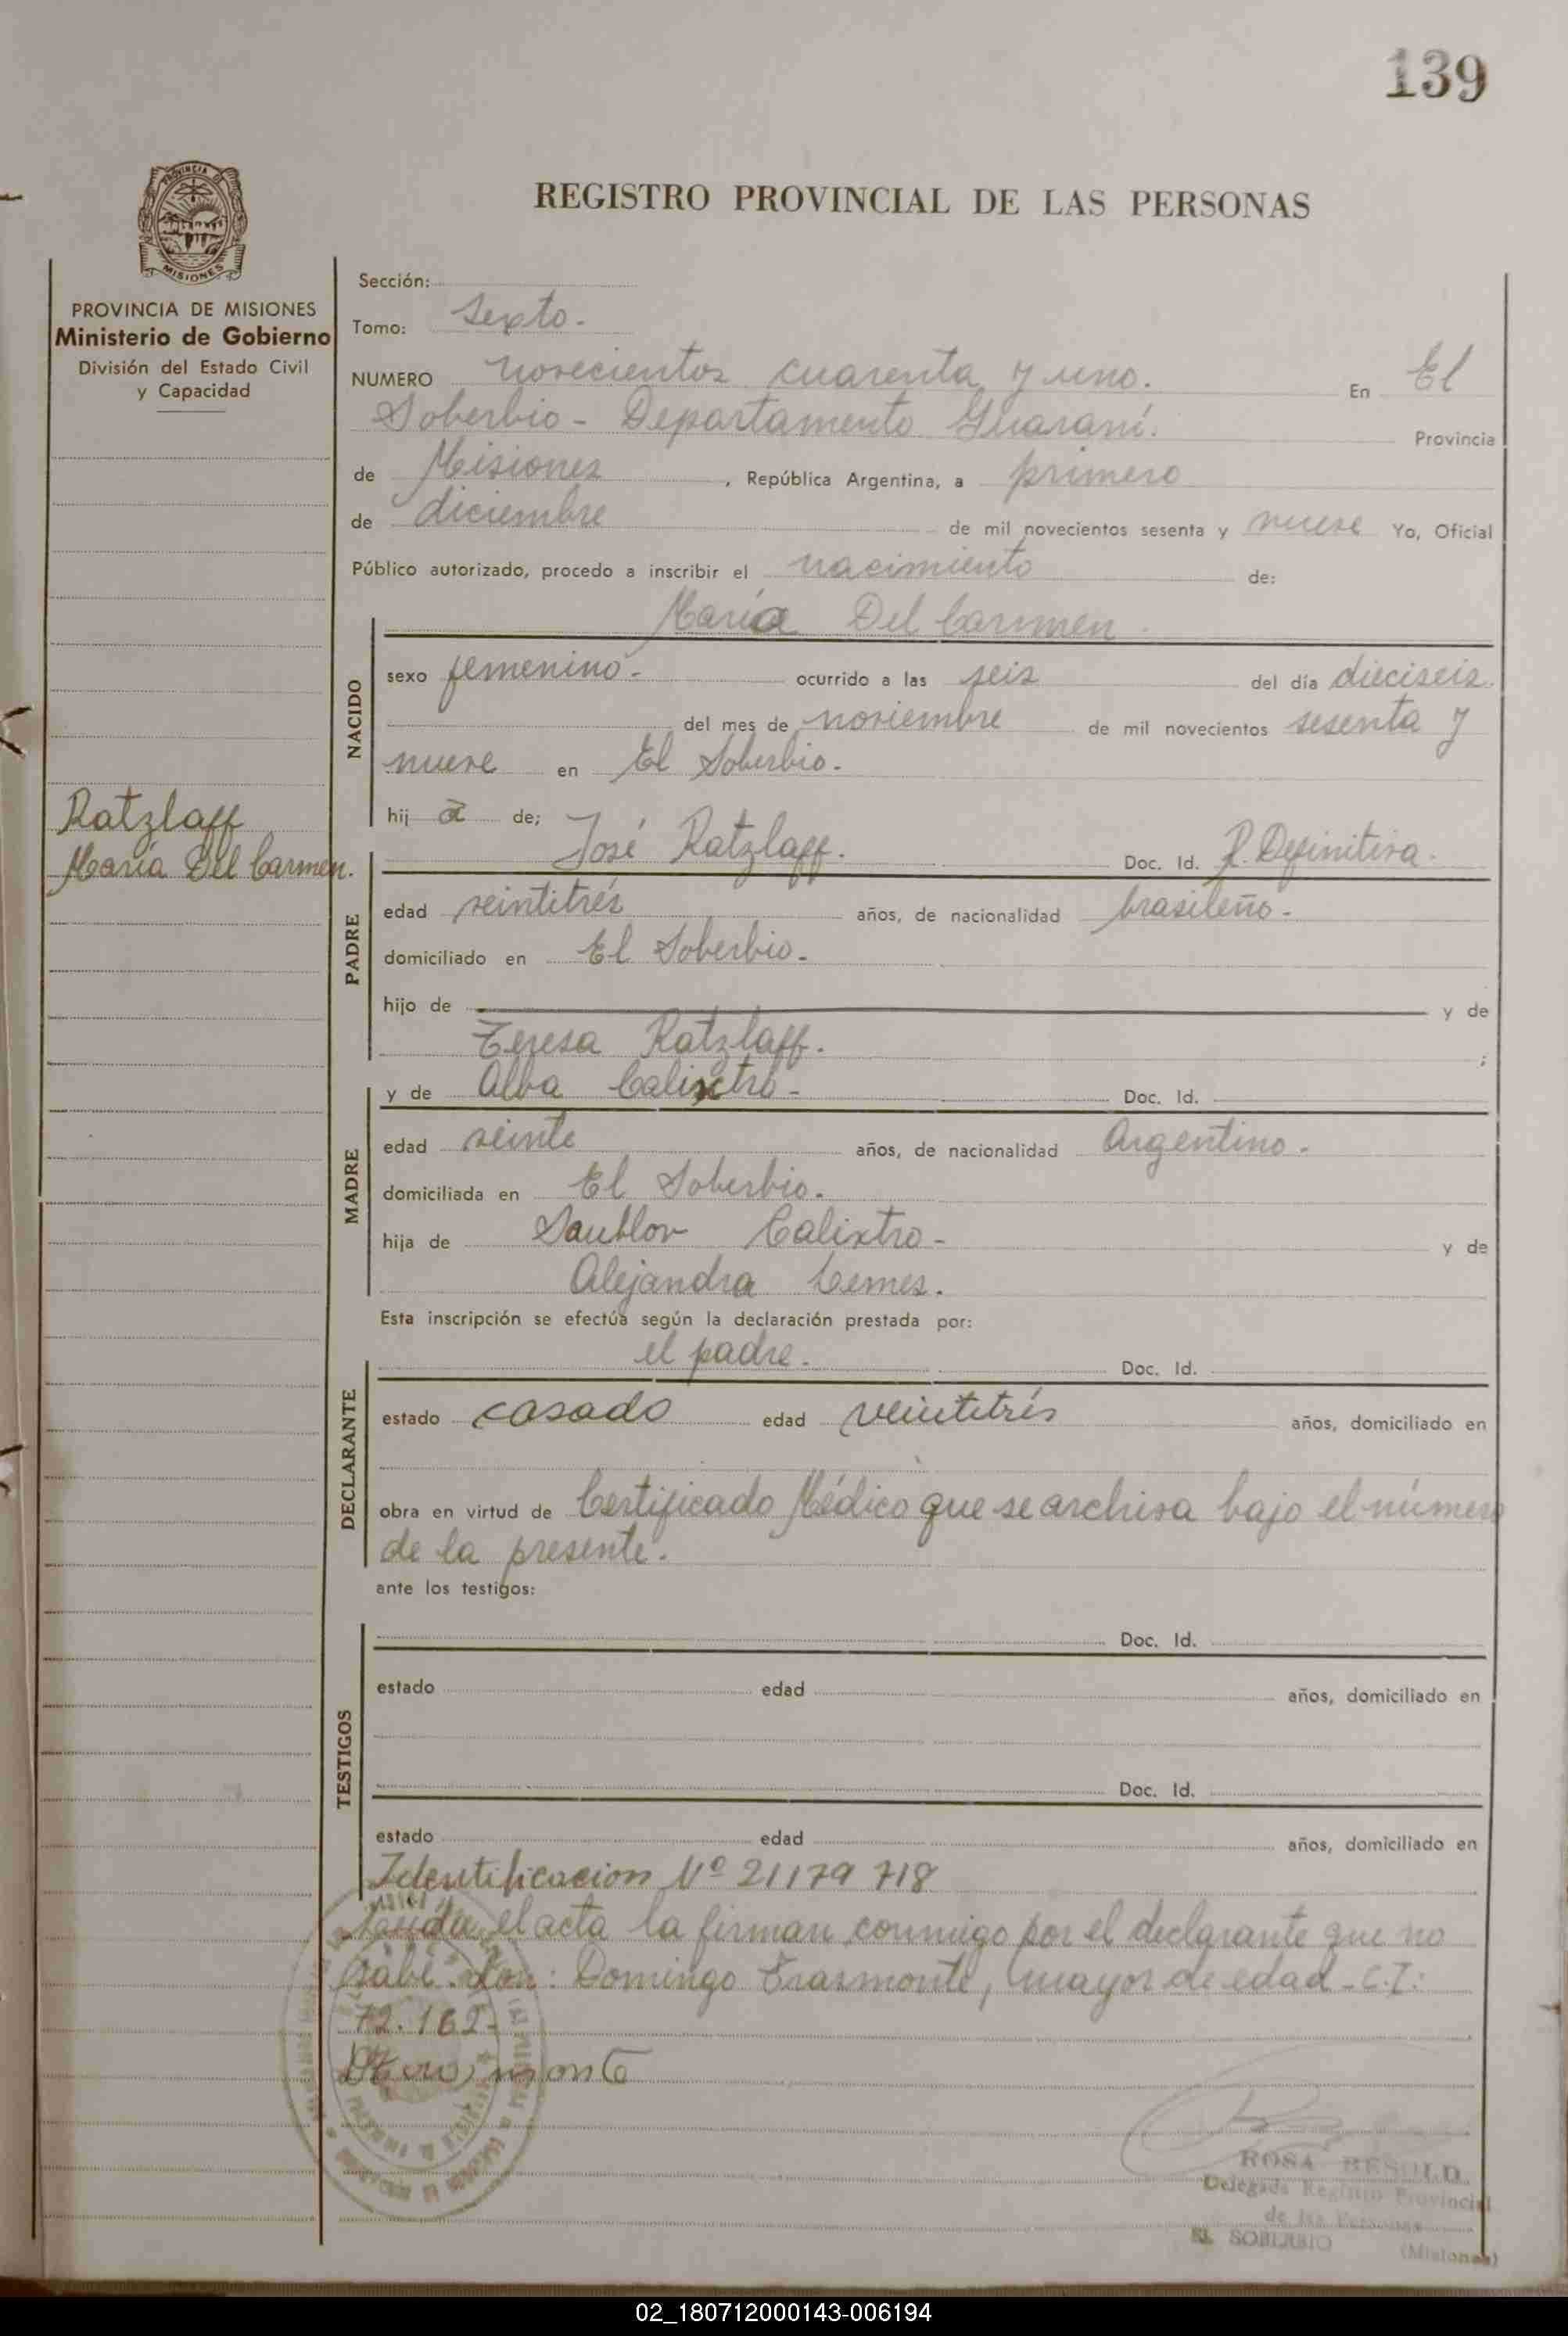 139
PROVINCIA D
MISIONES
REGISTRO PROVINCIAL DE LAS PERSONAS
PROVINCIA DE MISIONES
Ministerio de Gobierno
División del Estado Civil
y Capacidad
Ratzlaff
María Del Carmen.
Sección:
Tomo: Sexto.
NUMERO novecientos cuarenta y uno. En El
Soberbio - Departamento Guaraní. Provincia
de Misiones, República Argentina, a primero
de diciembre de mil novecientos sesenta y nueve Yo, Oficial
Público autorizado, procedo a inscribir el nacimiento de:
María Del Carmen
NACIDO
sexo femenino.- ocurrido a las seis del día dieciseis.
del mes de noviembre de mil novecientos sesenta y
nueve en El Soberbio.
hij a de;
PADRE
José Ratzlaff. Doc. Id. R. Definitiva.
edad veintitrés años, de nacionalidad brasileño.
domiciliado en El Soberbio.
hijo de y de
Teresa Ratzlaff. ;
MADRE
y de Alba Calixtro - Doc. Id.
edad veinte años, de nacionalidad Argentino.
domiciliada en El Soberbio.
hija de Calixtro - y de
Alejandra Lemes.
Esta inscripción se efectúa según la declaración prestada por:
DECLARANTE
el padre. Doc. Id.
estado casado edad veintitrés años, domiciliado en
obra en virtud de Certificado Médico que se archiva bajo el número
de la presente.
ante los testigos:
TESTIGOS
Doc. Id.
estado edad años, domiciliado en
Doc. Id.
estado edad años, domiciliado en
Identificacion Nº 21179 718
el acta la firman conmigo por el declarante que no
don: Domingo Trasmonte, mayor de edad - C.I:
72.162-
ROSA BESOLD
Delegada Registro Provincial
de las Personas
EL SOBERBIO (Misiones)
02_180712000143-006194